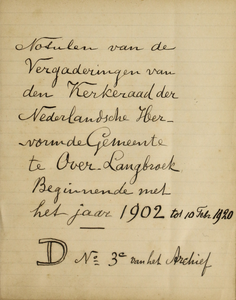 Notulen van de
Vergaderingen van
den Kerkeraad der
Nederlandsche Her-
vormde Gemeente
te Over-Langbroek
Beginnende met
het jaar 1902 tot 10 Febr 1920
D No 3e van het Archief